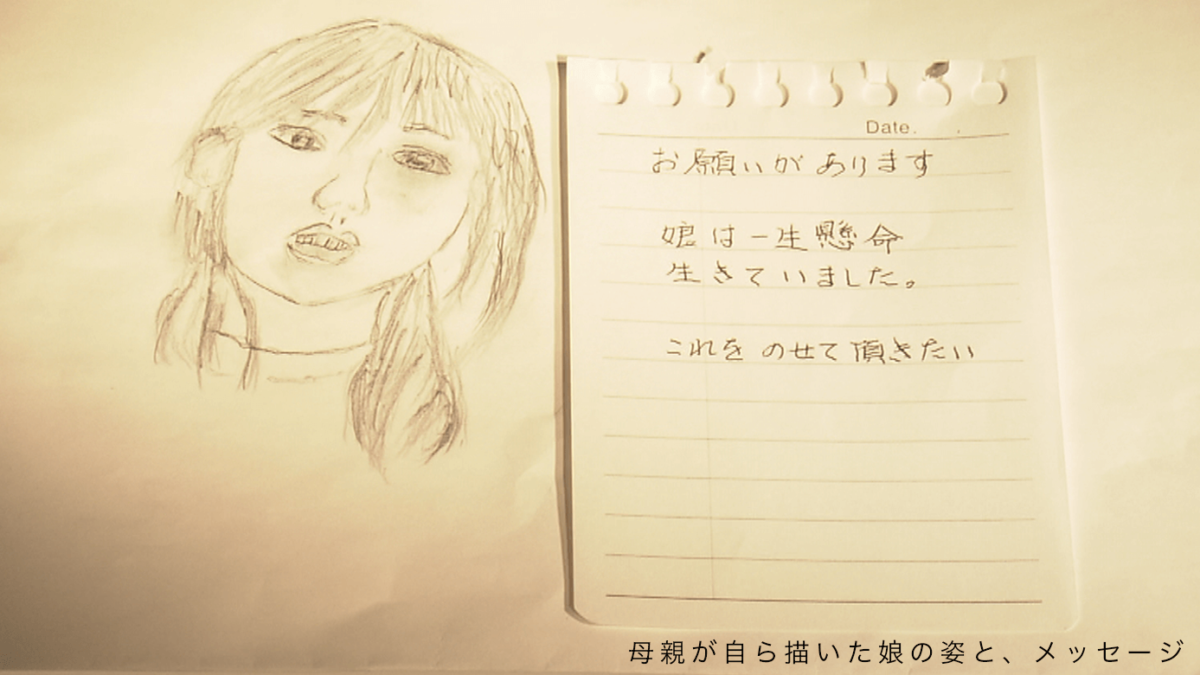 Date.
お願いがあります
娘は一生懸命
生きていました。
これをのせて頂きたい
母親が自ら描いた娘の姿と、メッセージ